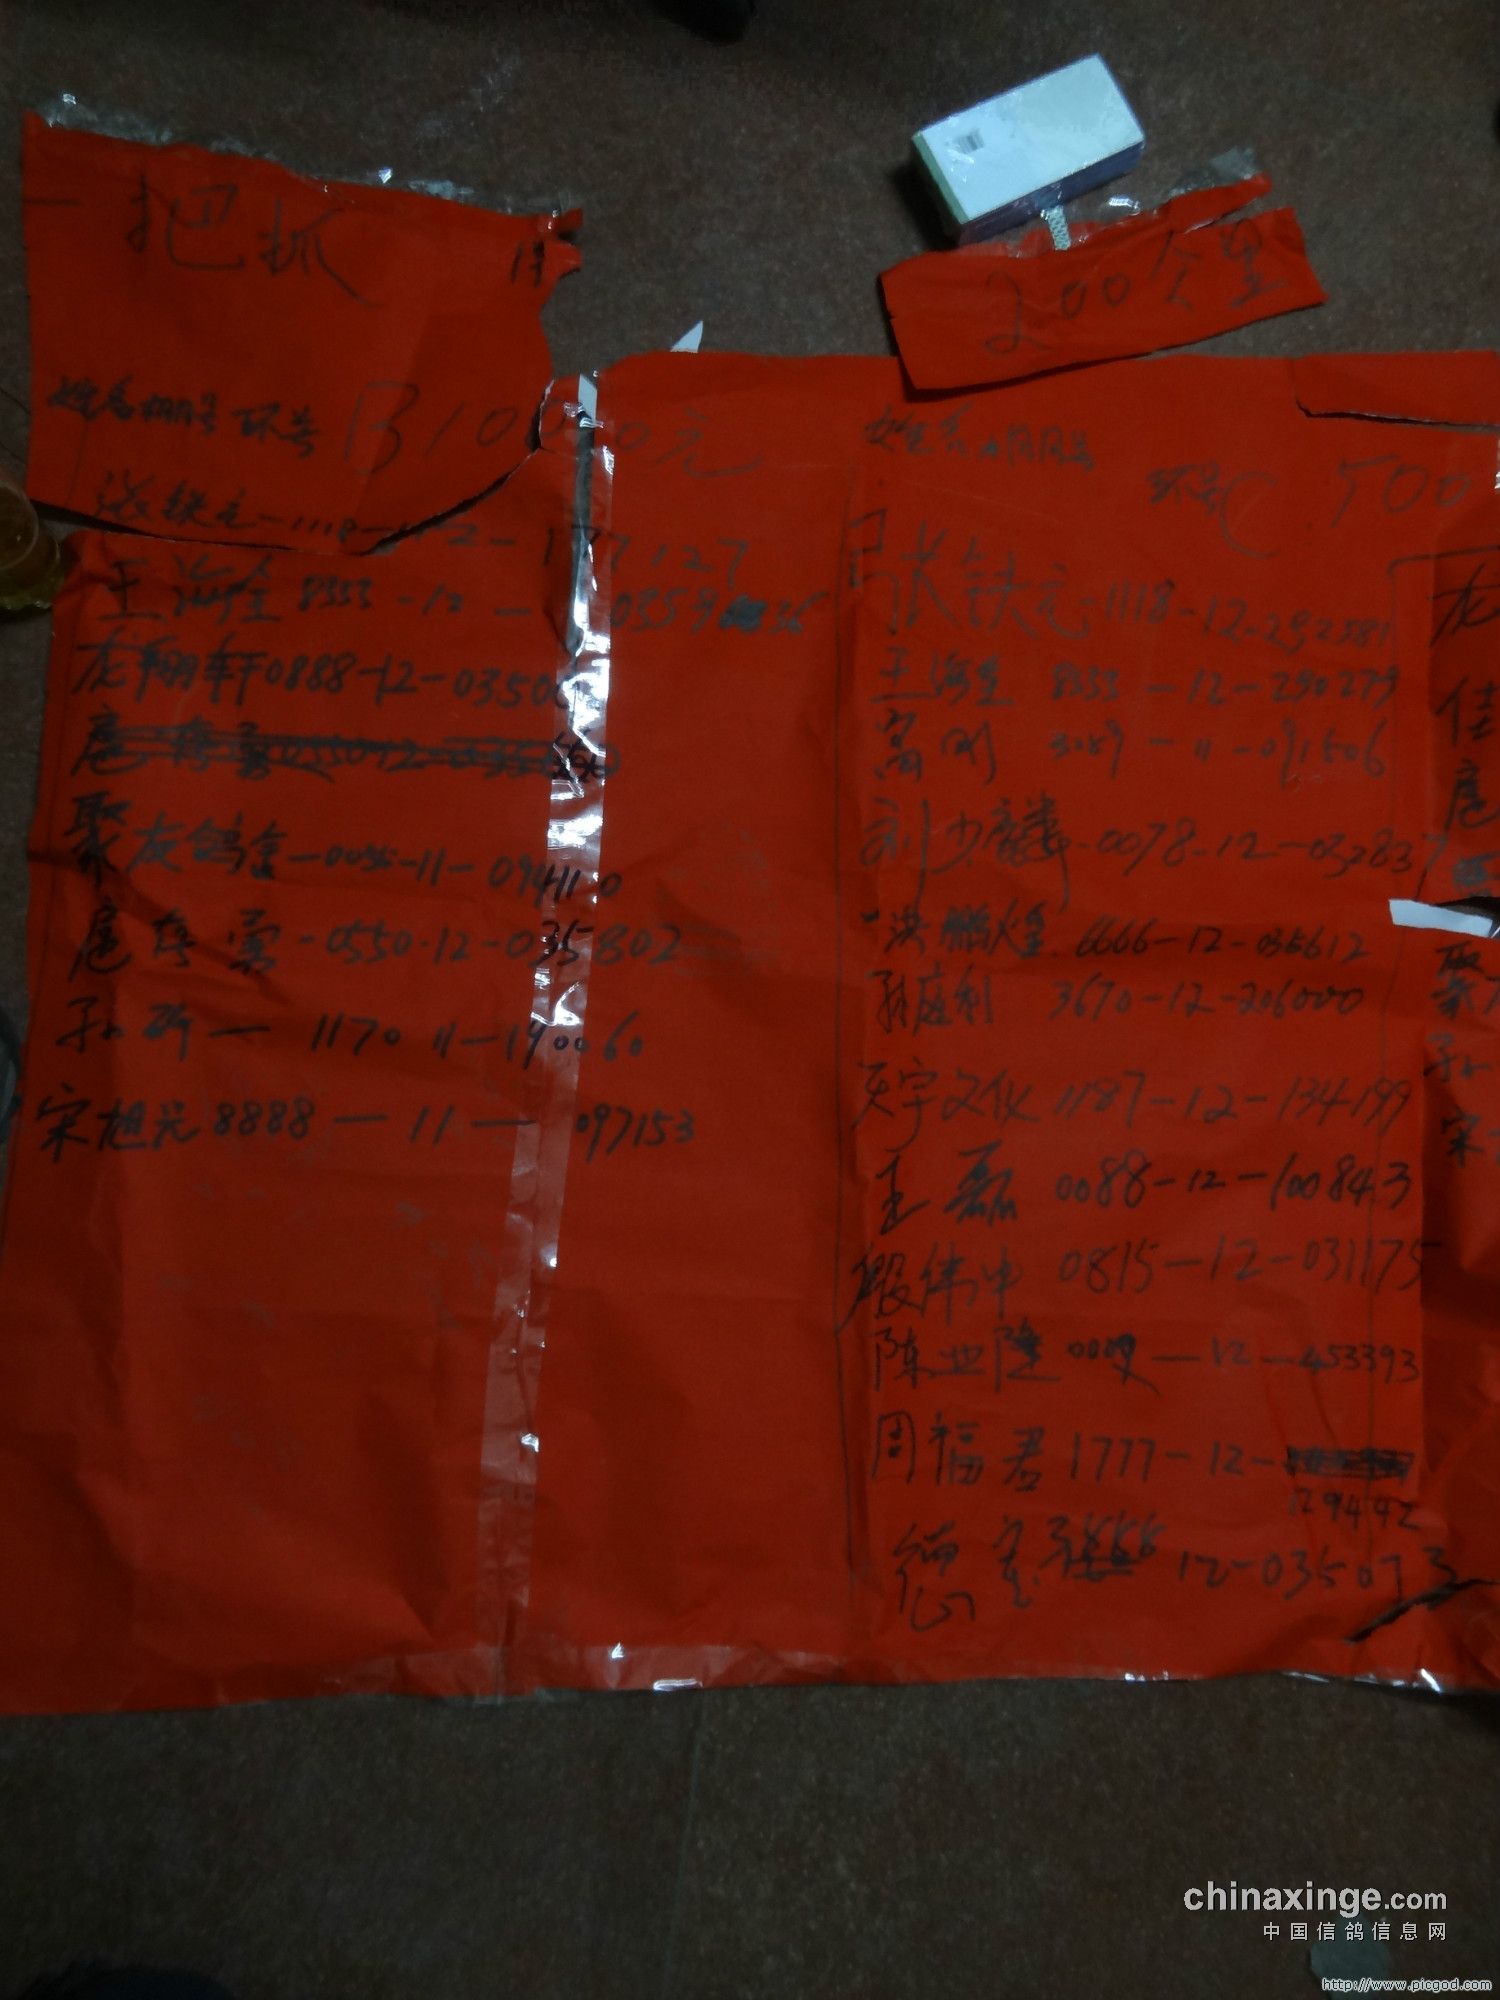 一把抓
200公里
姓名棚号 环号 B1000元
张铁元-1118-12-177127
王海全 8333-12-035936
龙翔轩0888-12-0350
聚友鸽舍-0056-11-094110
扈存勇-0550-12-035802
孙 - 1170 11-190060
宋旭光8888-11-097153
姓名棚号
环号C 500
张铁元-1118-12-292581
王海全 8333-12-290279
富刚 3289-11-091506
刘少 -0078-12-032837
洪鹏煌 6666-12-035612
孙庭利 3670-12-206000
天宇文化 1187-12-134199
王磊 0088-12-100843
殷伟中 0815-12-031175
陈业隆 -12-453393
周福君 1777-12-
129442
德宝 12-035073
龙
佳
扈
聚
孙
宋
chinaxinge.com
中国信鸽信息网
http://www.picgod.com